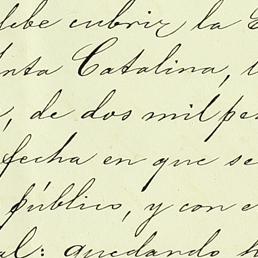 debe cubrir la
nta Catalina,
, de dos mil pe
fecha en que se
público, y con e
al: quedando h